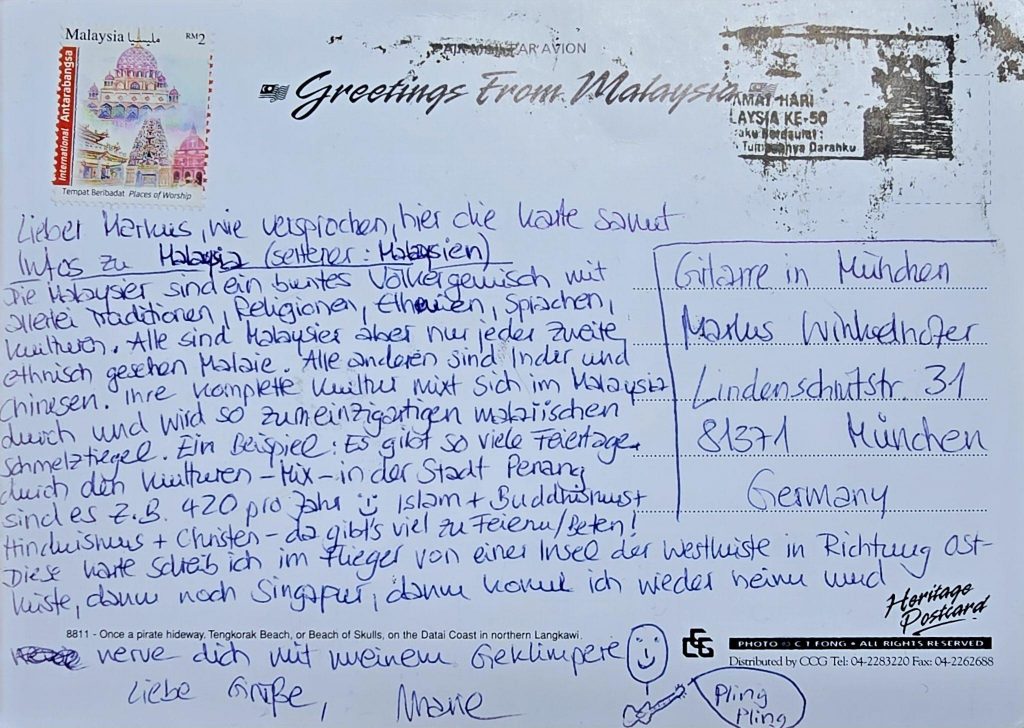 Malaysia مليسيا RM2
International Antarabangsa
Tempat Beribadat Places of Worship
PAR AVION
Greetings From Malaysia
AMAT HARI
LAYSIA KE-50
Darahku
Lieber Markus, wie versprochen, hier die Karte samt
Infos zu Malaysia (seltener: Malaysien)
Die Malaysier sind ein buntes Völkergemisch mit
allerlei Traditionen, Religionen, Ethnien, Sprachen,
Kulturen. Alle sind Malaysier aber nur jeder zweite
ethnisch gesehen Malaie. Alle anderen sind Inder und
Chinesen. Ihre komplette Kultur mixt sich im Malaysia
durch und wird so zum einzigartigen malaiischen
Schmelztiegel. Ein Beispiel: Es gibt so viele Feiertage
durch den Kulturen-Mix - in der Stadt Penang
sind es z.B. 420 pro Jahr Islam + Buddhismus +
Hinduismus + Christen - da gibt's viel zu Feiern/Beten!
Diese Karte schreib ich im Flieger von einer Insel der Westküste in Richtung Ost-
küste, dann noch Singapur, dann komm ich wieder heim und
nerve dich mit meinem Geklimpere
Liebe Grüße, Marie
Pling
Pling
Gitarre in München
Markus Winkelhofer
Lindenschmitstr. 31
81371 München
Germany
8811 - Once a pirate hideway. Tengkorak Beach, or Beach of Skulls, on the Datai Coast in northern Langkawi.
Heritage
Postcard
CCG
PHOTO © C T FONG • ALL RIGHTS RESERVED
Distributed by CCG Tel: 04-2283220 Fax: 04-2262688